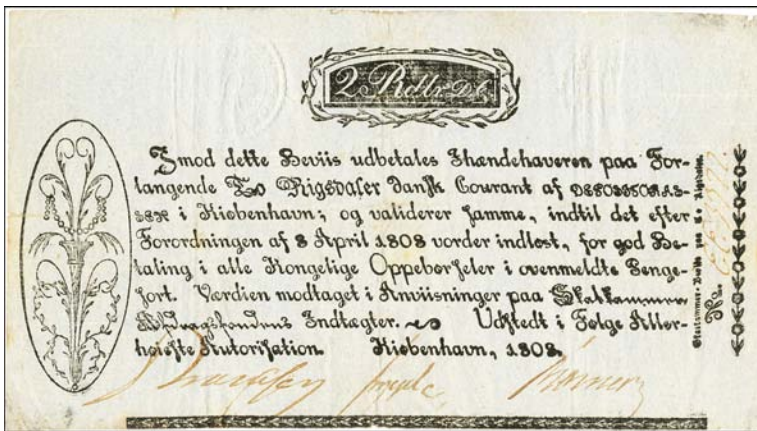 2 Rdlr. D. C.
Imod dette Beviis udbetales Ihændehaveren paa For-
langende To Rigsdaler Dansk Courant af DEPOSITOCAS-
SEN i Kiøbenhavn; og validerer samme, indtil det efter
Forordningen af 8 April 1808 vorder indløst, for god Be-
taling i alle Kongelige Oppebørseler i ovenmeldte Penge-
sort. Værdien modtaget i Anviisninger paa Skatkammer
Afdragsfondens Indtægter. Udstedt i Følge Aller-
høieste Autorisation. Kiøbenhavn, 1808.
No.